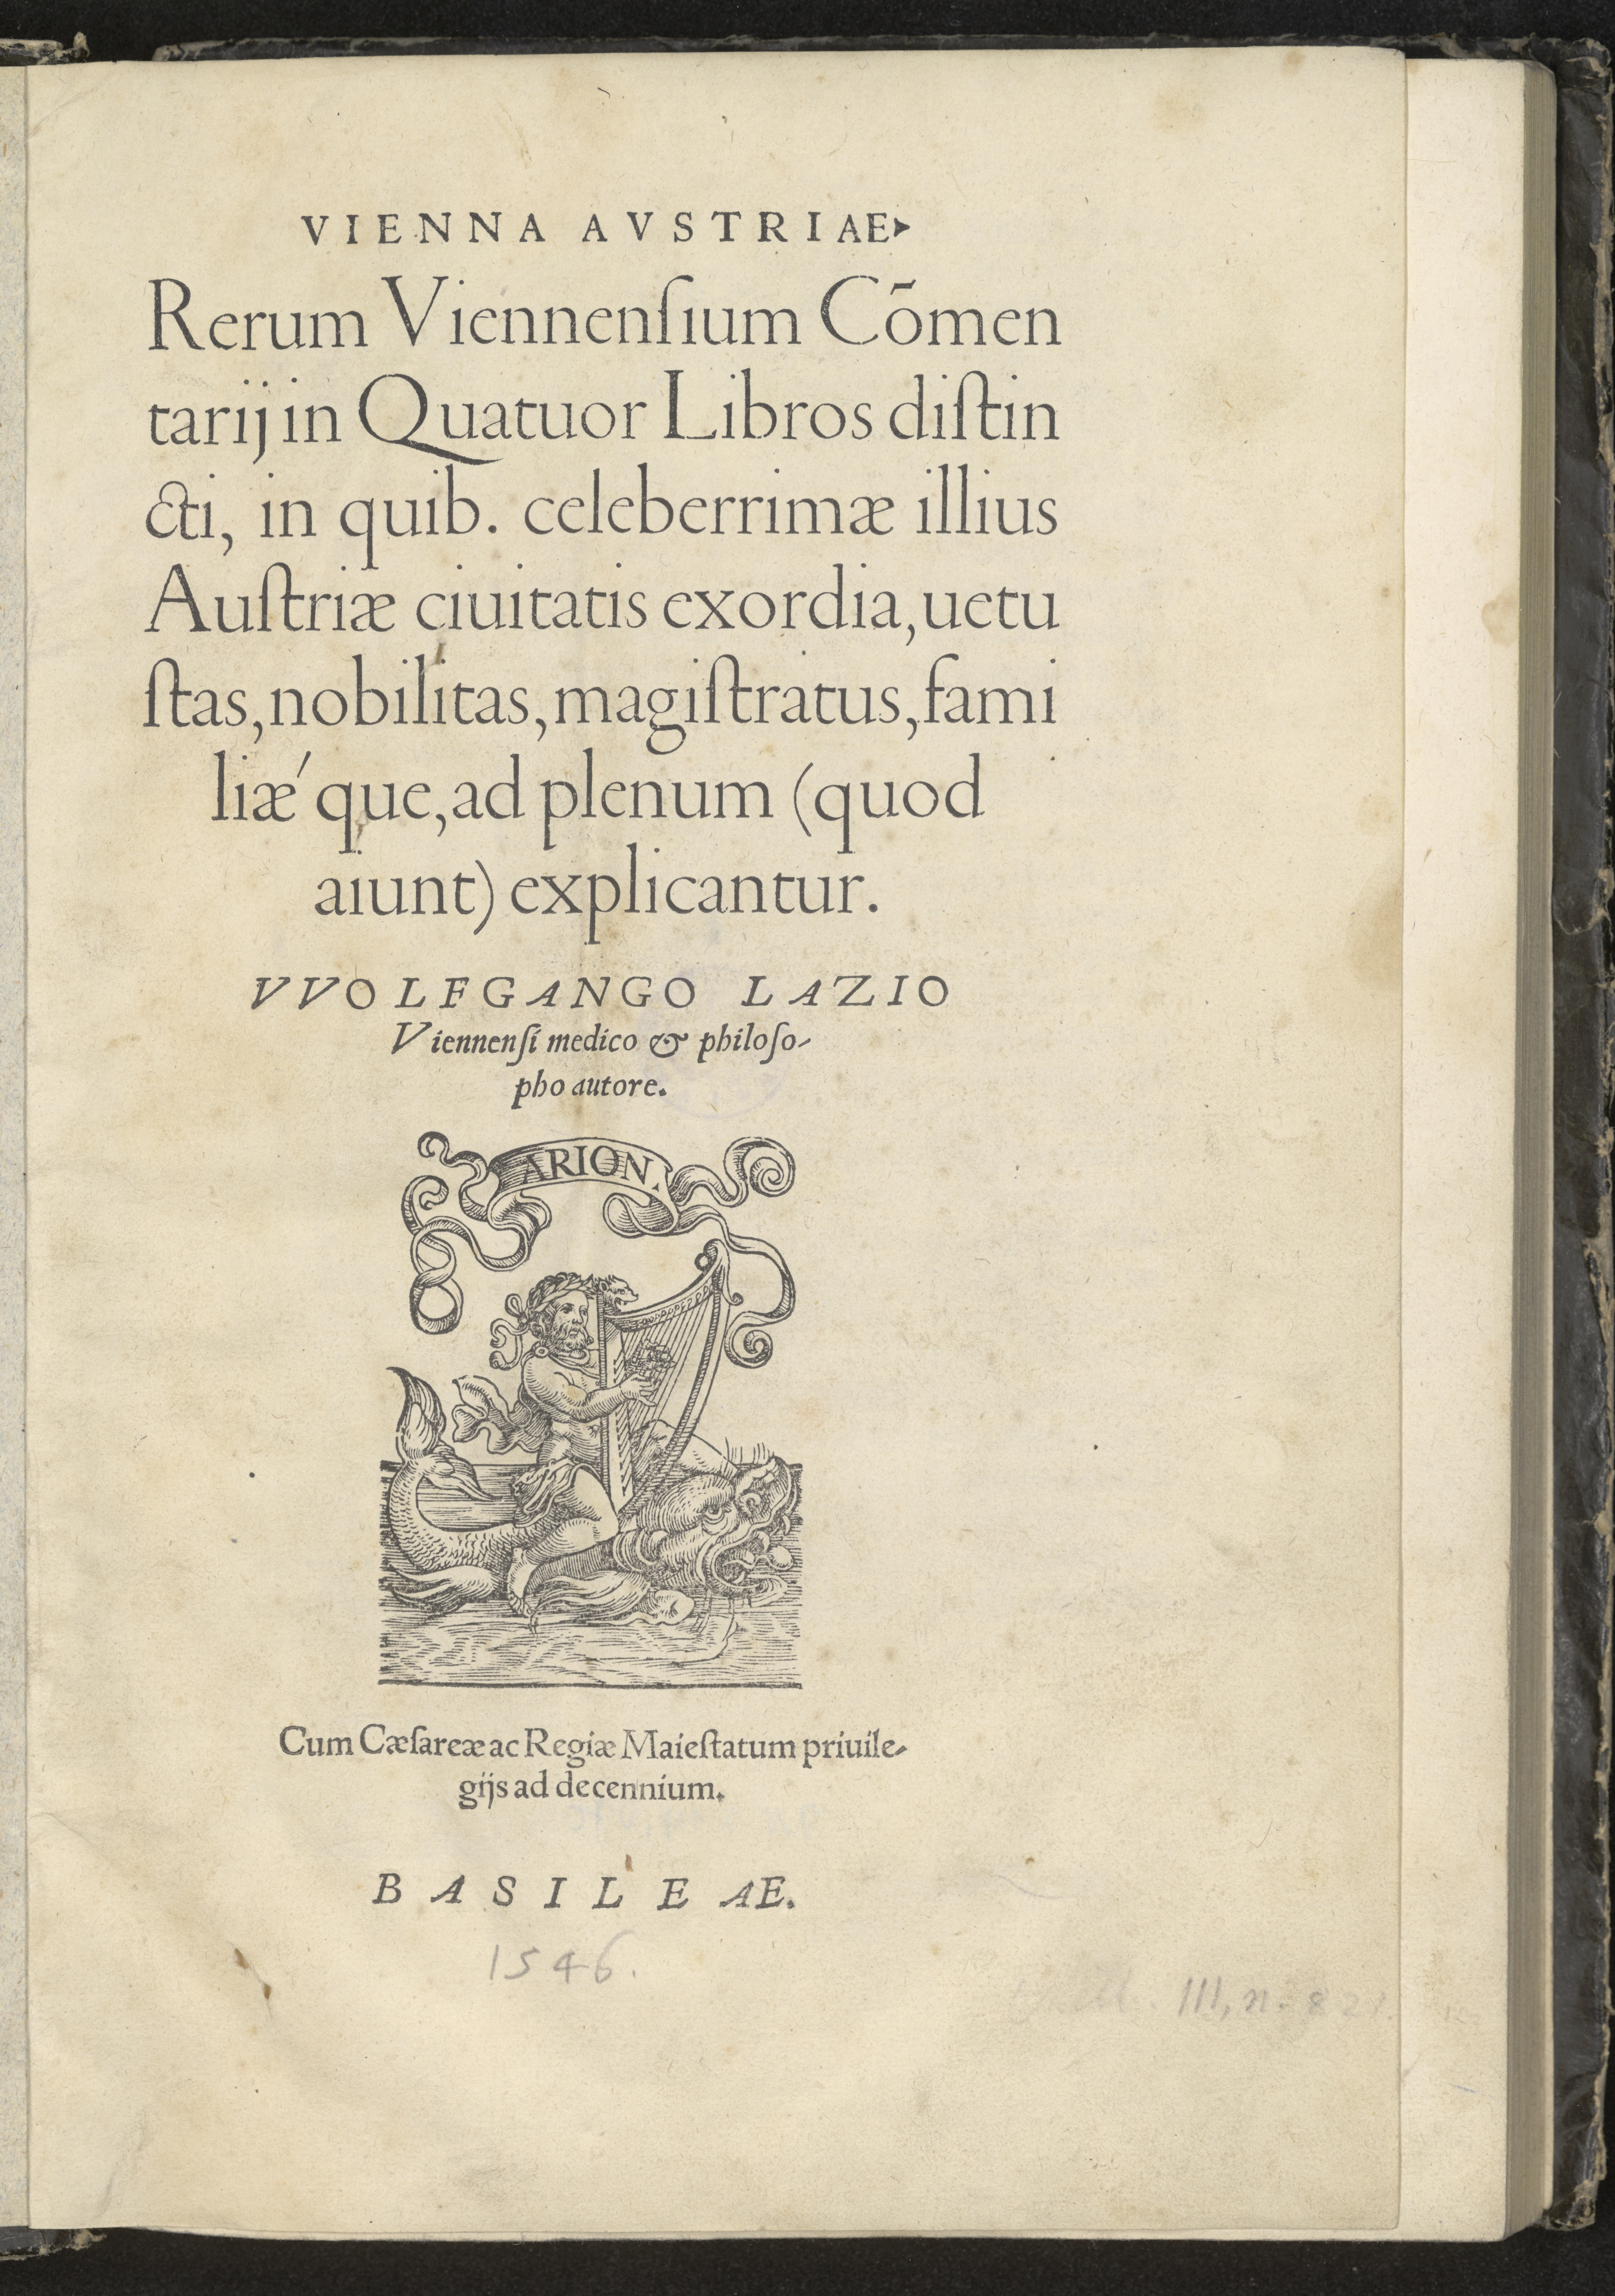 VIENNA AVSTRIAE
Rerum Viennenſium Cōmen
tarij in Quatuor Libros diſtin
cti, in quib. celeberrimæ illius
Auſtriæ ciuitatis exordia, uetu
ſtas, nobilitas, magiſtratus, fami
liæ´que, ad plenum (quod
aiunt) explicantur.
VVOLFGANGO LAZIO
Viennenſi medico & philoſo-
pho autore.
ARION.
Cum Cæſareæ ac Regiæ Maieſtatum priuile-
gijs ad decennium.
BASILEAE.
1546.
III, n. 821.